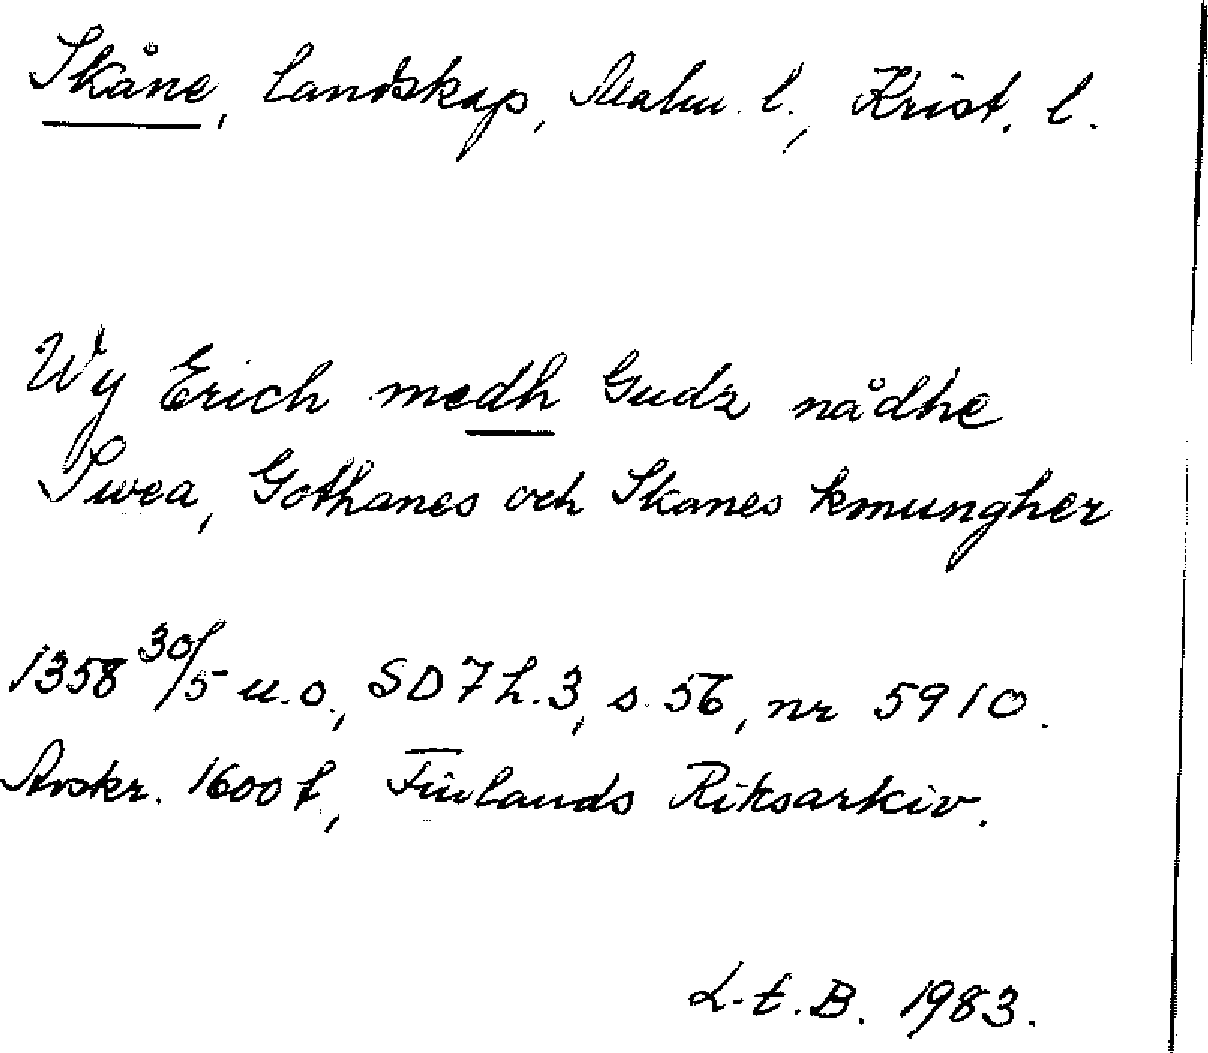 Skåne, landskap, Malm. l., Krist. l.
Wy Erich medh Gudz nådhe
Swea, Gothanes och Skanes kmungher
1358 30/5 u.o., SD 7 h.3, s. 56, nr 5910.
Avskr. 1600 t, Finlands Riksarkiv.
L.E.B. 1983.